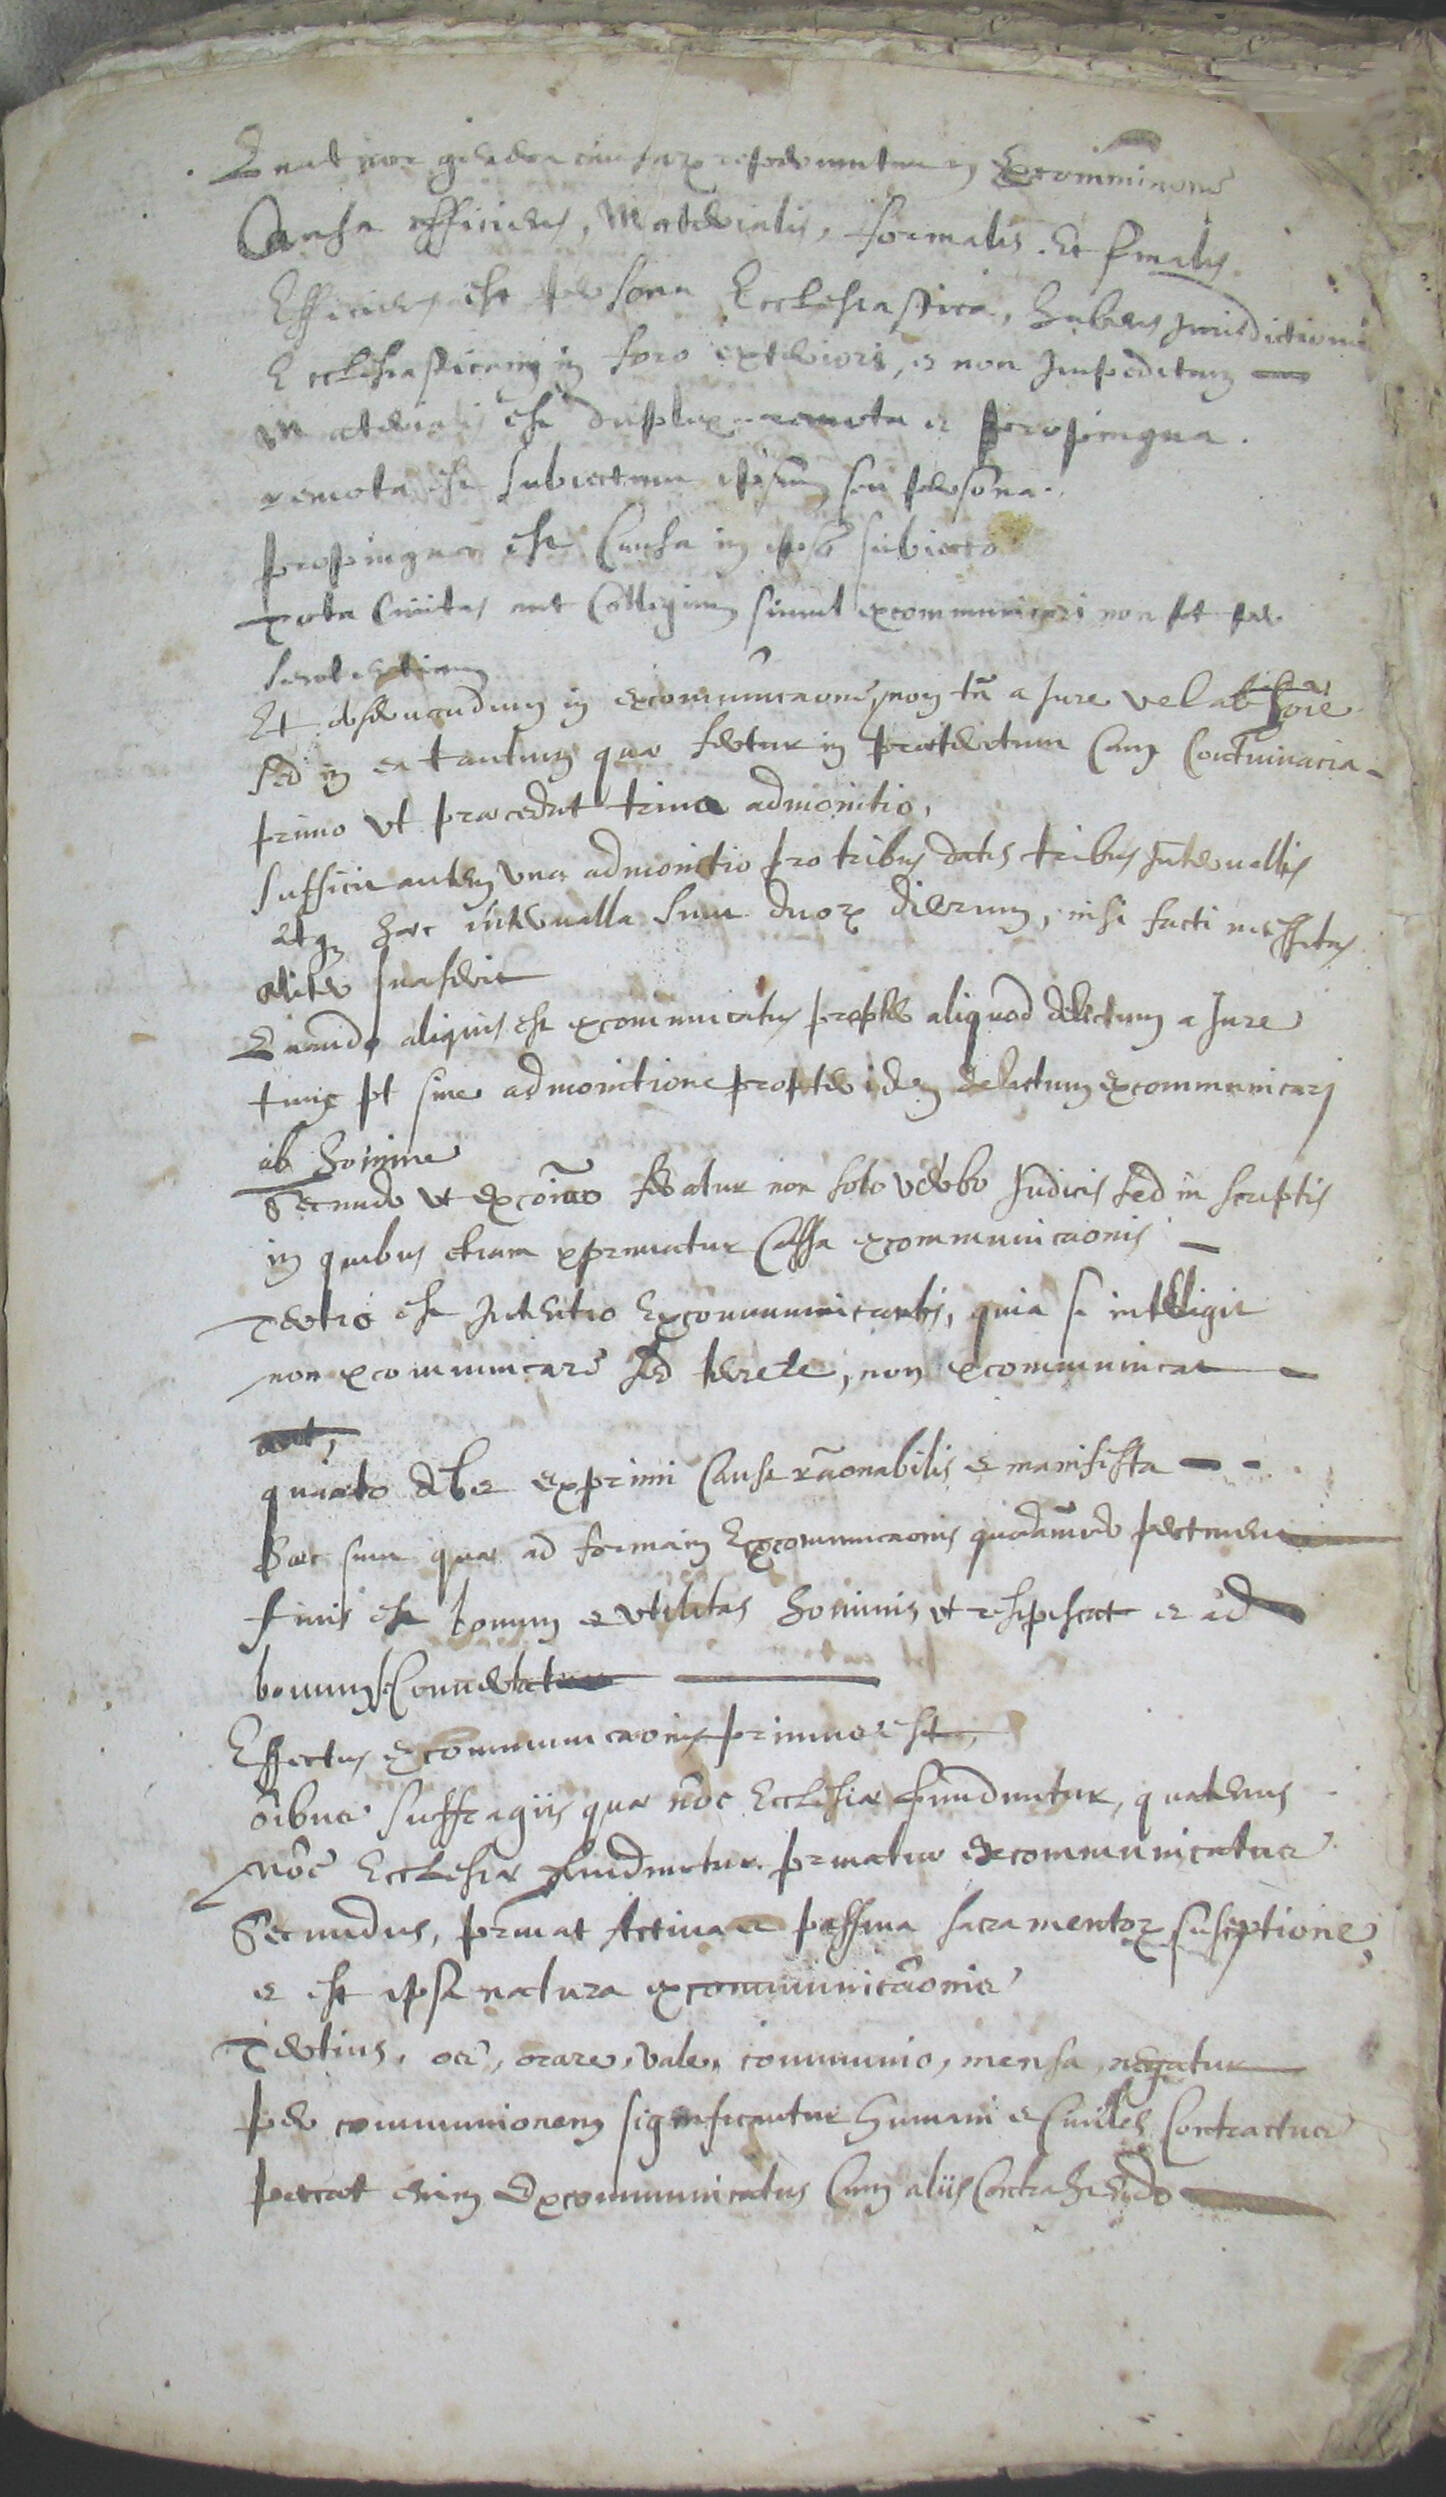 Quatuor genera causarum reperiuntur in Excommunione
Causa efficiens, Materialis, formalis. Et finalis
Efficiens est persona Ecclesiastica, habens Jurisdictionem
Ecclesiasticam in foro exteriori, et non Impeditam
Materialis est duplex remota et propinqua.
remota est subiectum ipsum seu persona.
propinqua est Causa in ipso subiecto
Tota Ciuitas aut Collegium simul excommunicari non pt per
sententiam
Et obseruandum in excomunicaone, non tam a Jure vel ab hoie
sed in ea tantum quae fertur in praeteritum Cum Contumacia
primo vt praecedat trina admonitio,
sufficit autem vna admonitio pro tribus datis tribus Interuallis
atque haec interualla sunt duorum dierum, nisi facti necessitas
aliter suaserit
Quando aliquis est excommunicatus propter aliquod delictum a Jure
tunc pt sine admonitione propter idem delictum excommunicari
ab homine
Secundo vt excoicao feratur non solo verbo Judicis sed in scriptis
in quibus etiam exprimatur Causa excommunicaonis
Tertio est Intentio Excommunicantis, quia si intelligit
non excommunicare sed terrere, non excommunicat
quarto debet exprimi Causa raonabilis et manifesta
haec sunt quae ad formam Excommunicaonis quodammodo pertinent
finis est bonum et vtilitas hominis, vt resipiscat et ad
bonum se Conuertat
Effectus excommunicaonis primus est
oibus suffragiis quae noe Ecclesiae funduntur, quatenus
noe Ecclesiae funduntur. priuatur excommunicatus
Secundus, priuat Actiua et passiua sacramentorum susceptione,
et est ipsa natura excommunicaonis
Tertius, os, orare, vale, communio, mensa negatur
per communionem significantur humani et Ciuiles Contractus
peccat enim Excommunicatus Cum aliis Contrahendo